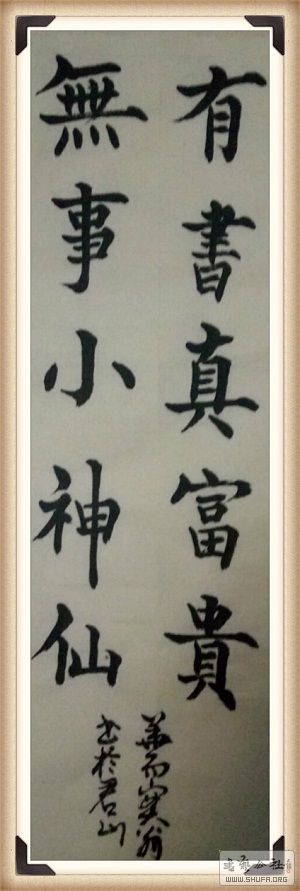 有書真富貴
無事小神仙
華而實翁
書於君山
書法公社
WWW.SHUFA.ORG